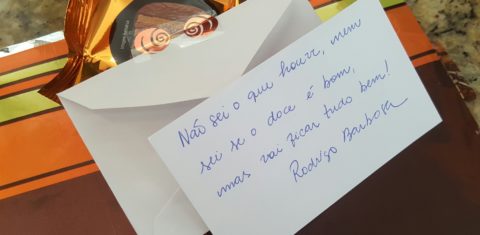 Não sei o que houve, nem
sei se o doce é bom,
mas vai ficar tudo bem!
Rodrigo Barbosa